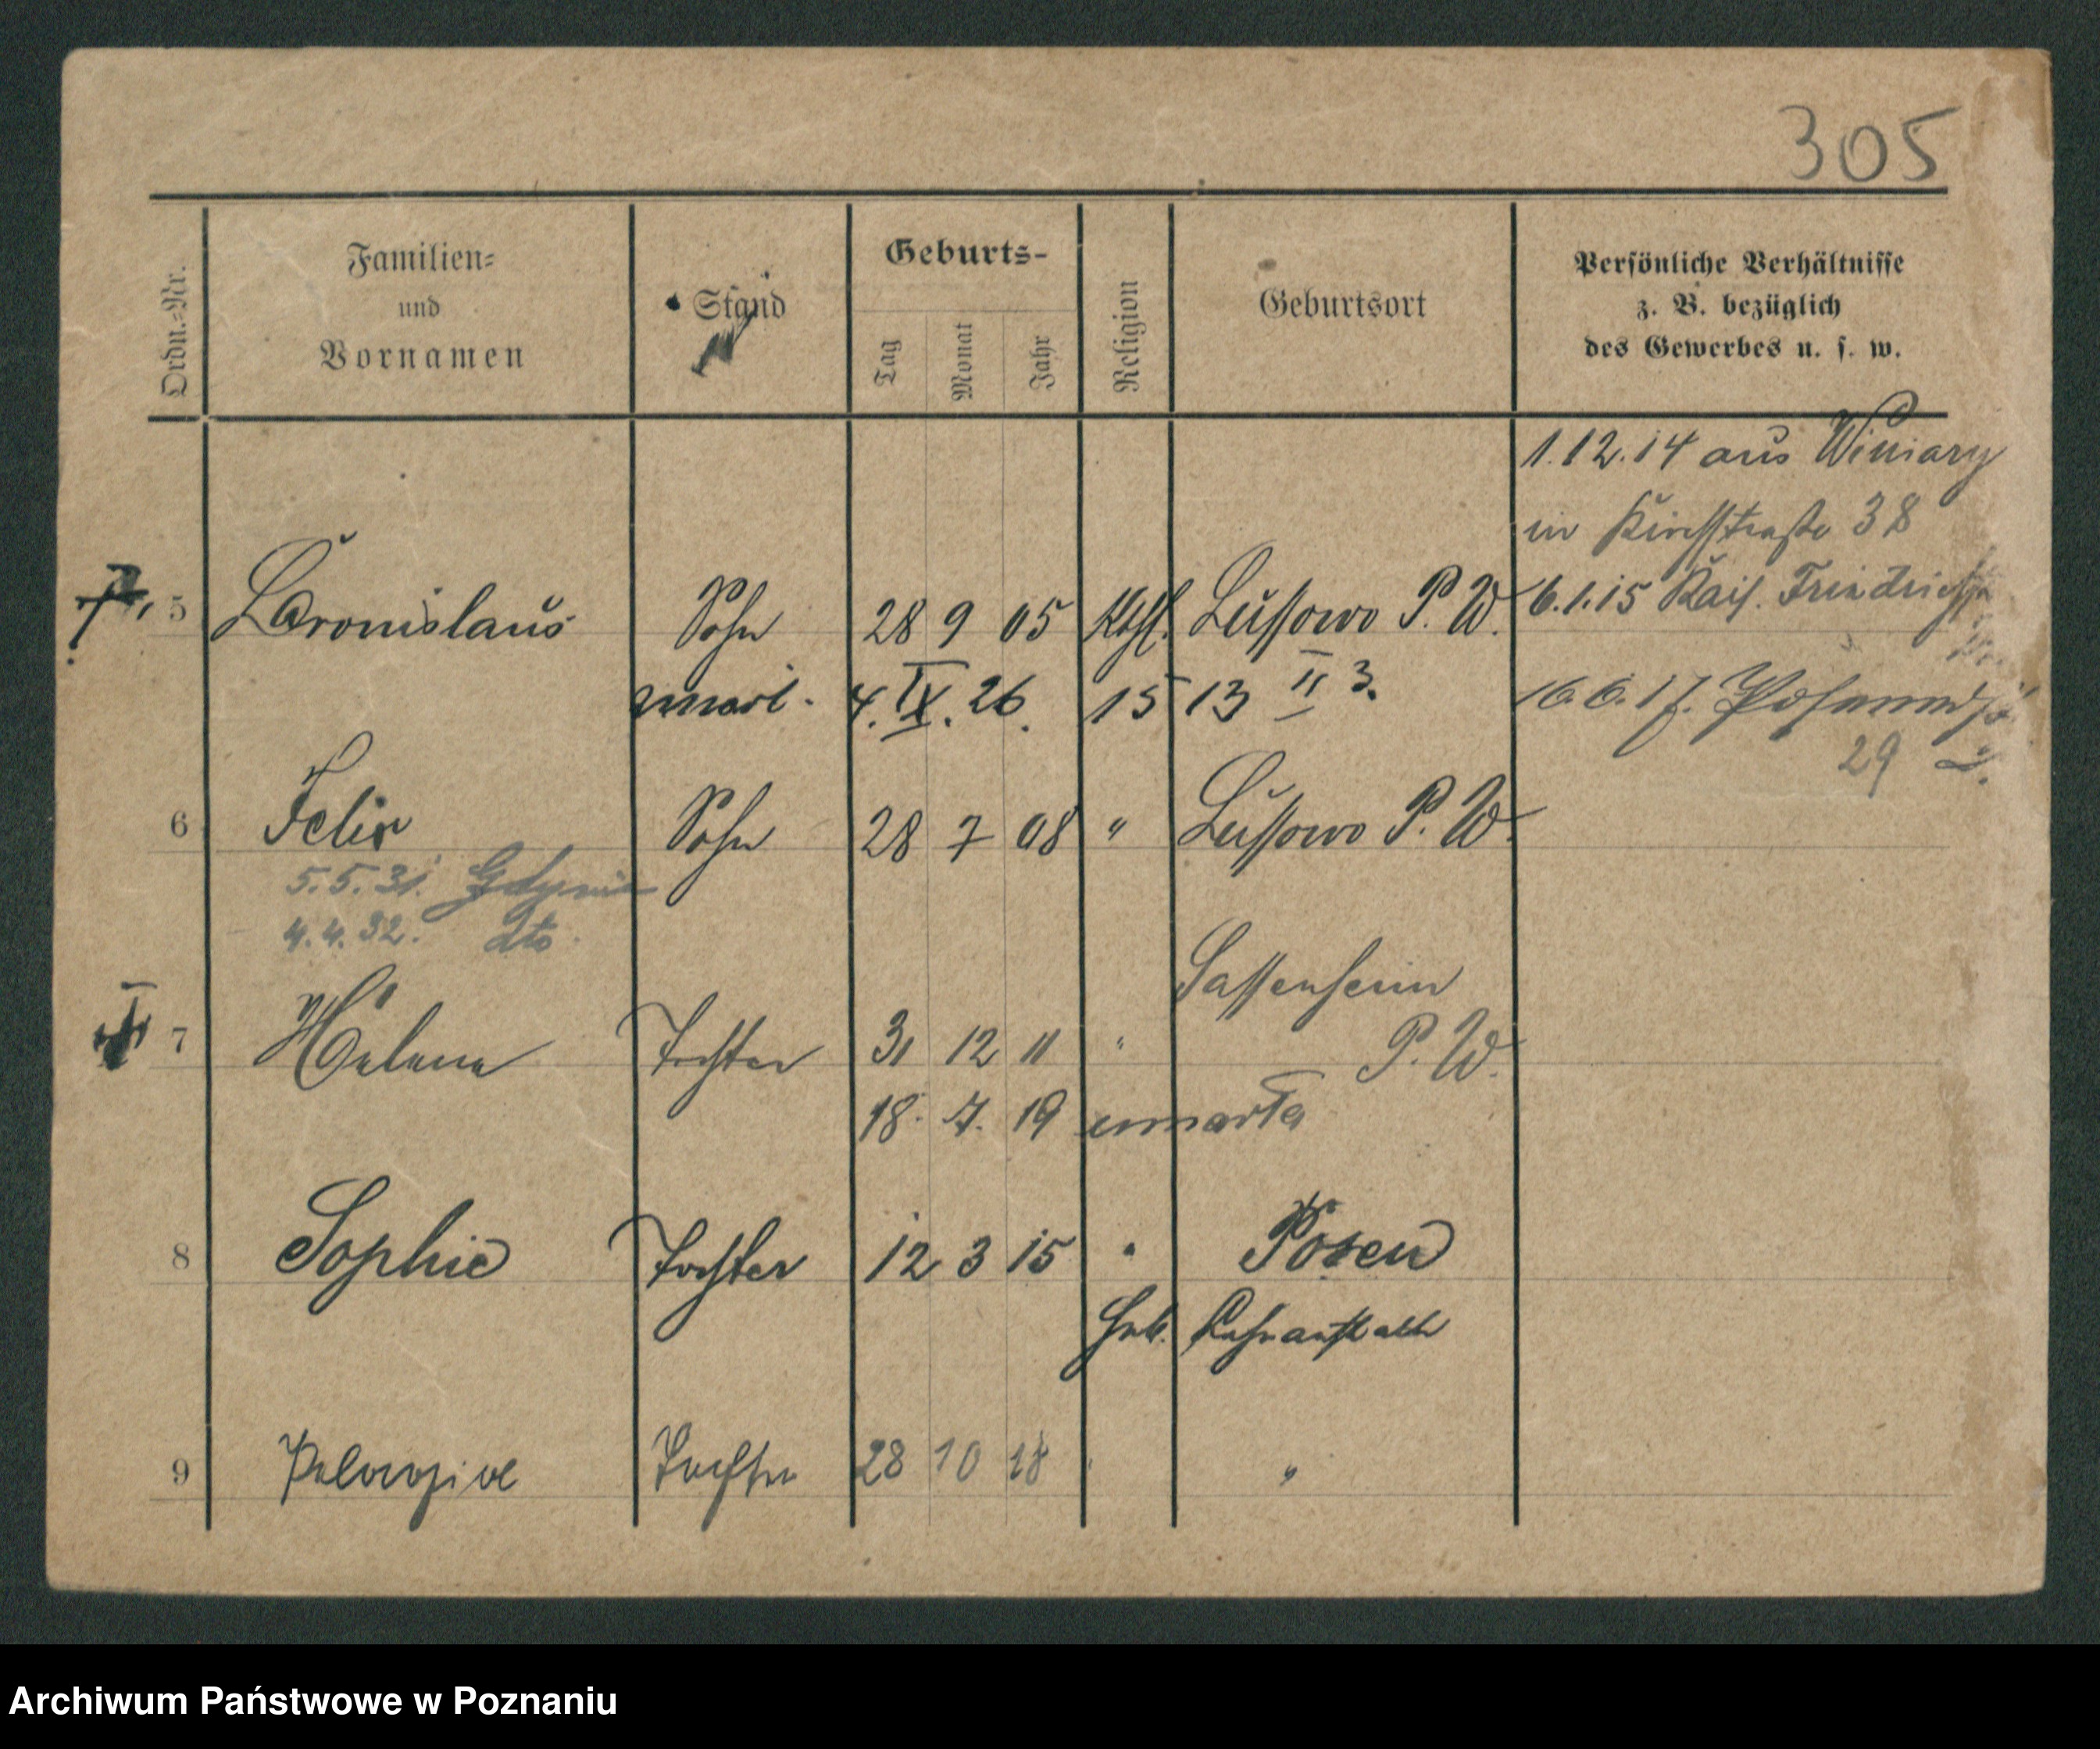 305
Ordn.-Nr.
Familien-
und
Vornamen
Stand
Geburts-
Tag
Monat
Jahr
Religion
Geburtsort
Persönliche Verhältnisse
z. B. bezüglich
des Gewerbes u. s. w.
1.12.14 aus Winiary
in Kirchstraße 38
5 Bronislaus Sohn 28 9 05 kath. Lussowo P. W. 6.1.15 Kais. Friedrichstr.
zmarł. 4. IX. 26. 15 13 II 3. 16.6.17.
29
6 Felix Sohn 28 7 08 " Lussowo P. W.
5.5.31. Gdynia
4.4.32. dto
Sassenheim
7 Helene Tochter 31 12 11 " P. W.
18. 7. 19 umarła
8 Sophie Tochter 12 3 15 " Posen
9 Tochter 28 10 18 " "
Archiwum Państwowe w Poznaniu